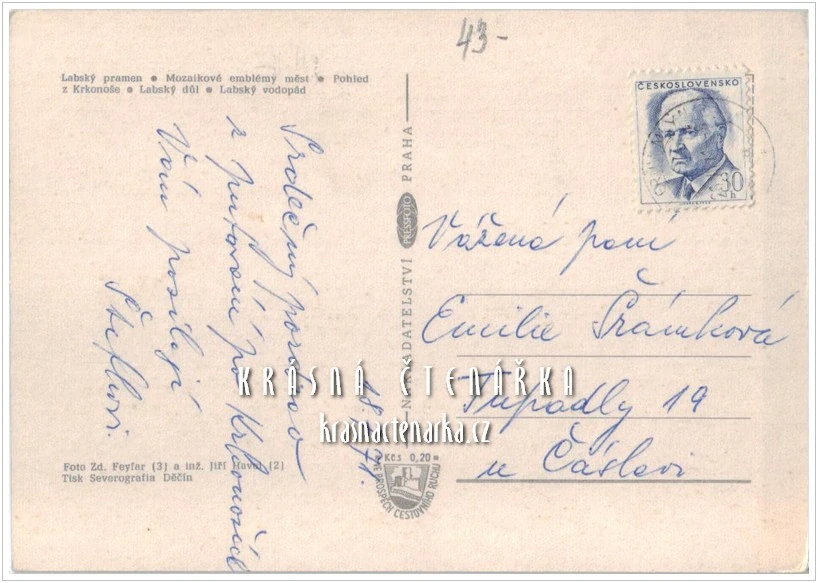 43-
Labský pramen ● Mozaikové emblémy měst ● Pohled
z Krkonoše ● Labský důl ● Labský vodopád
ČESKOSLOVENSKO
30
h
Srdečný pozdrav
z putování po Krkonoších
Vám posílají
NAKLADATELSTVÍ PRESSFOTO PRAHA
Vážená paní
Emilie Šrámková
Tupadly 19
u Čáslavi
KRÁSNÁ ČTENÁŘKA
krasnactenarka.cz
Kčs 0,20
VE PROSPĚCH CESTOVNÍHO RUCHU
Foto Zd. Feyfar (3) a inž. Jiří Havel (2)
Tisk Severografia Děčín